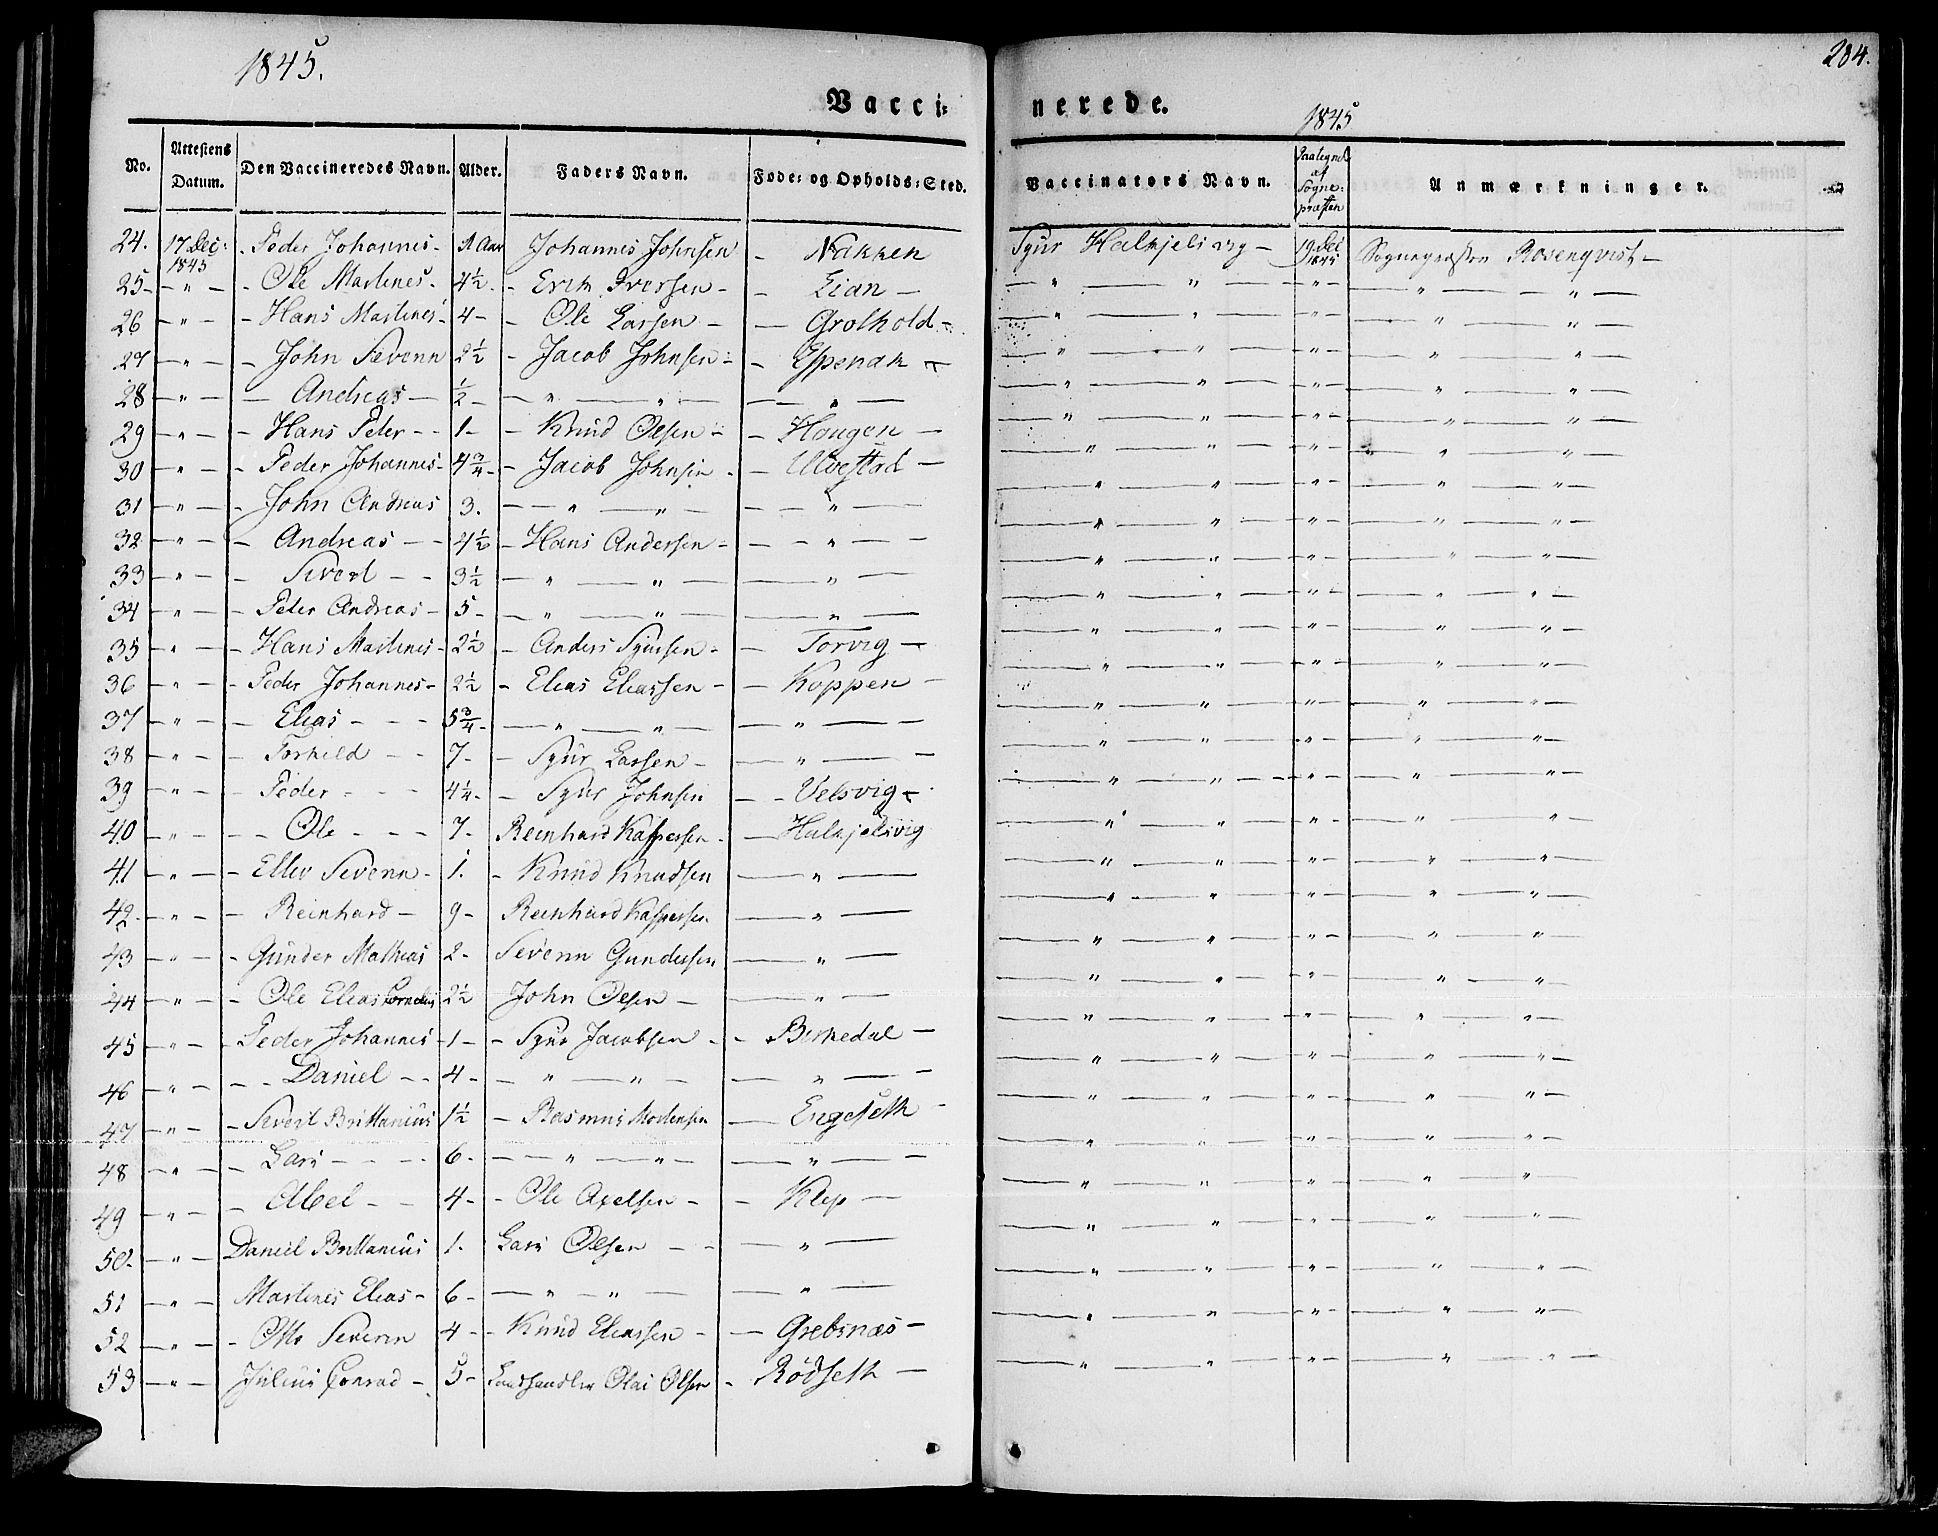 1845.
204.
Vacci=
nerede.
1845
No. Attestens Datum. Den Vaccineredes Navn. Alder. Faders Navn. Føde= og Opholds=Sted. Vaccinators Navn. Paategnet af Sogne=præsten Anmærkninger.
24. 17 Dec: 1845 - Peder Johannes - 1 Aar Johannes Johnsen - Nakken Sÿur Halkjelsvig - 19 Dec 1845 Sognepræsten Rosenqvist -
25 - - " - - Ole Martines - 4½ - - Erik Iversen - - Eian - - " - " - - " - - " - " -
26 - " - - Hans Martines - 4 - - Ole Larsen - - Grothold - - " - " - - " - - " - " -
27 - " - - John Severin 2½ - Jacob Johnsen - - Espenak - - " - " - - " - - " - " -
28 - " - - Andreas - ½ - - " - " - - " - - " - " - - " - - " - " -
29 - " - - Hans Peter - - 1 - - Knud Olsen - - Hougen - - " - " - - " - - " - " -
30 - " - - Peder Johannes - 4¾ - - Jacob Johnsen - - Ulvestad - - " - " - - " - - " - " -
31 - " - - John Andreas 3. - " - " - - " - - " - " - - " - - " - " -
32 - " - - Andreas - - 4½ - Hans Andersen - - " - - " - " - - " - - " - " -
33 - " - - Sivert - - 3½ - " - " - - " - - " - " - - " - - " - " -
34 - " - - Peter Andreas - 5 - - " - " - - " - - " - " - - " - - " - " -
35 - " - - Hans Martines - 2½ - Anders Sÿursen - - Torvig - - " - " - - " - - " - " -
36 - " - - Peder Johannes - 2½ - Elias Eliassen - - Koppen - - " - " - - " - - " - " -
37 - " - - Elias - - - 5¾ - - " - " - - " - - " - " - - " - - " - " -
38 - " - - Torkild - - 7 - - Sÿur Larsen - - " - - " - " - - " - - " - " -
39 - " - - Peder - - - 4¼ - - Sÿur Johnsen - - Velsvig - - " - " - - " - - " - " -
40 - " - - - Ole - - - 7 - Reinhard Kaspersen - - Halkjelsvig - " - " - - " - - " - " -
41 - " - - Ellev Severin - 1. - Knud Knudsen - " - - " - " - - " - - " - " -
42 - - " - - Reinhard - 9 - Reinhard Kaspersen - " - - " - " - - " - - " - " -
43 - " - - Gunder Mathias 2 - Severin Gundersen - " - - " - " - - " - - " - " -
44 - " - - Ole Elias Cornelius 2½ John Olsen - - " - - " - " - - " - - " - " -
45 - " - - Peder Johannes - 1 - - Sÿur Jacobsen - - Birkedal - - " - " - - " - - " - " -
46 - " - - - Daniel - - 4 - - " - " - - " - - " - " - - " - - " - " -
47 - " - - Sivert Brittanius 1½ - Rasmus Mortensen - Engeseth - - " - " - - " - - " - " -
48 - " - - Lars - - - 6 - - " - " - - " - - " - " - - " - - " - " -
49 - " - - Abel - - 4 - - Ole Axelsen - - Klep - - " - " - - " - - " - " -
50 - - " - Daniel Brittanius 1. Lars Olsen - - - " - - " - " - - " - - " - " -
51 - " - Martines Elias - 6 - - " - " - - " - - " - " - - " - - " - " -
52 - " - - Otto Severin 4 - - Knud Eliassen - - Grebsnæs - - " - " - - " - - " - " -
53 - " - Julius Conrad - 5 - Landhandler Olai Olsen - Rødseth - - " - " - - " - - " - " -